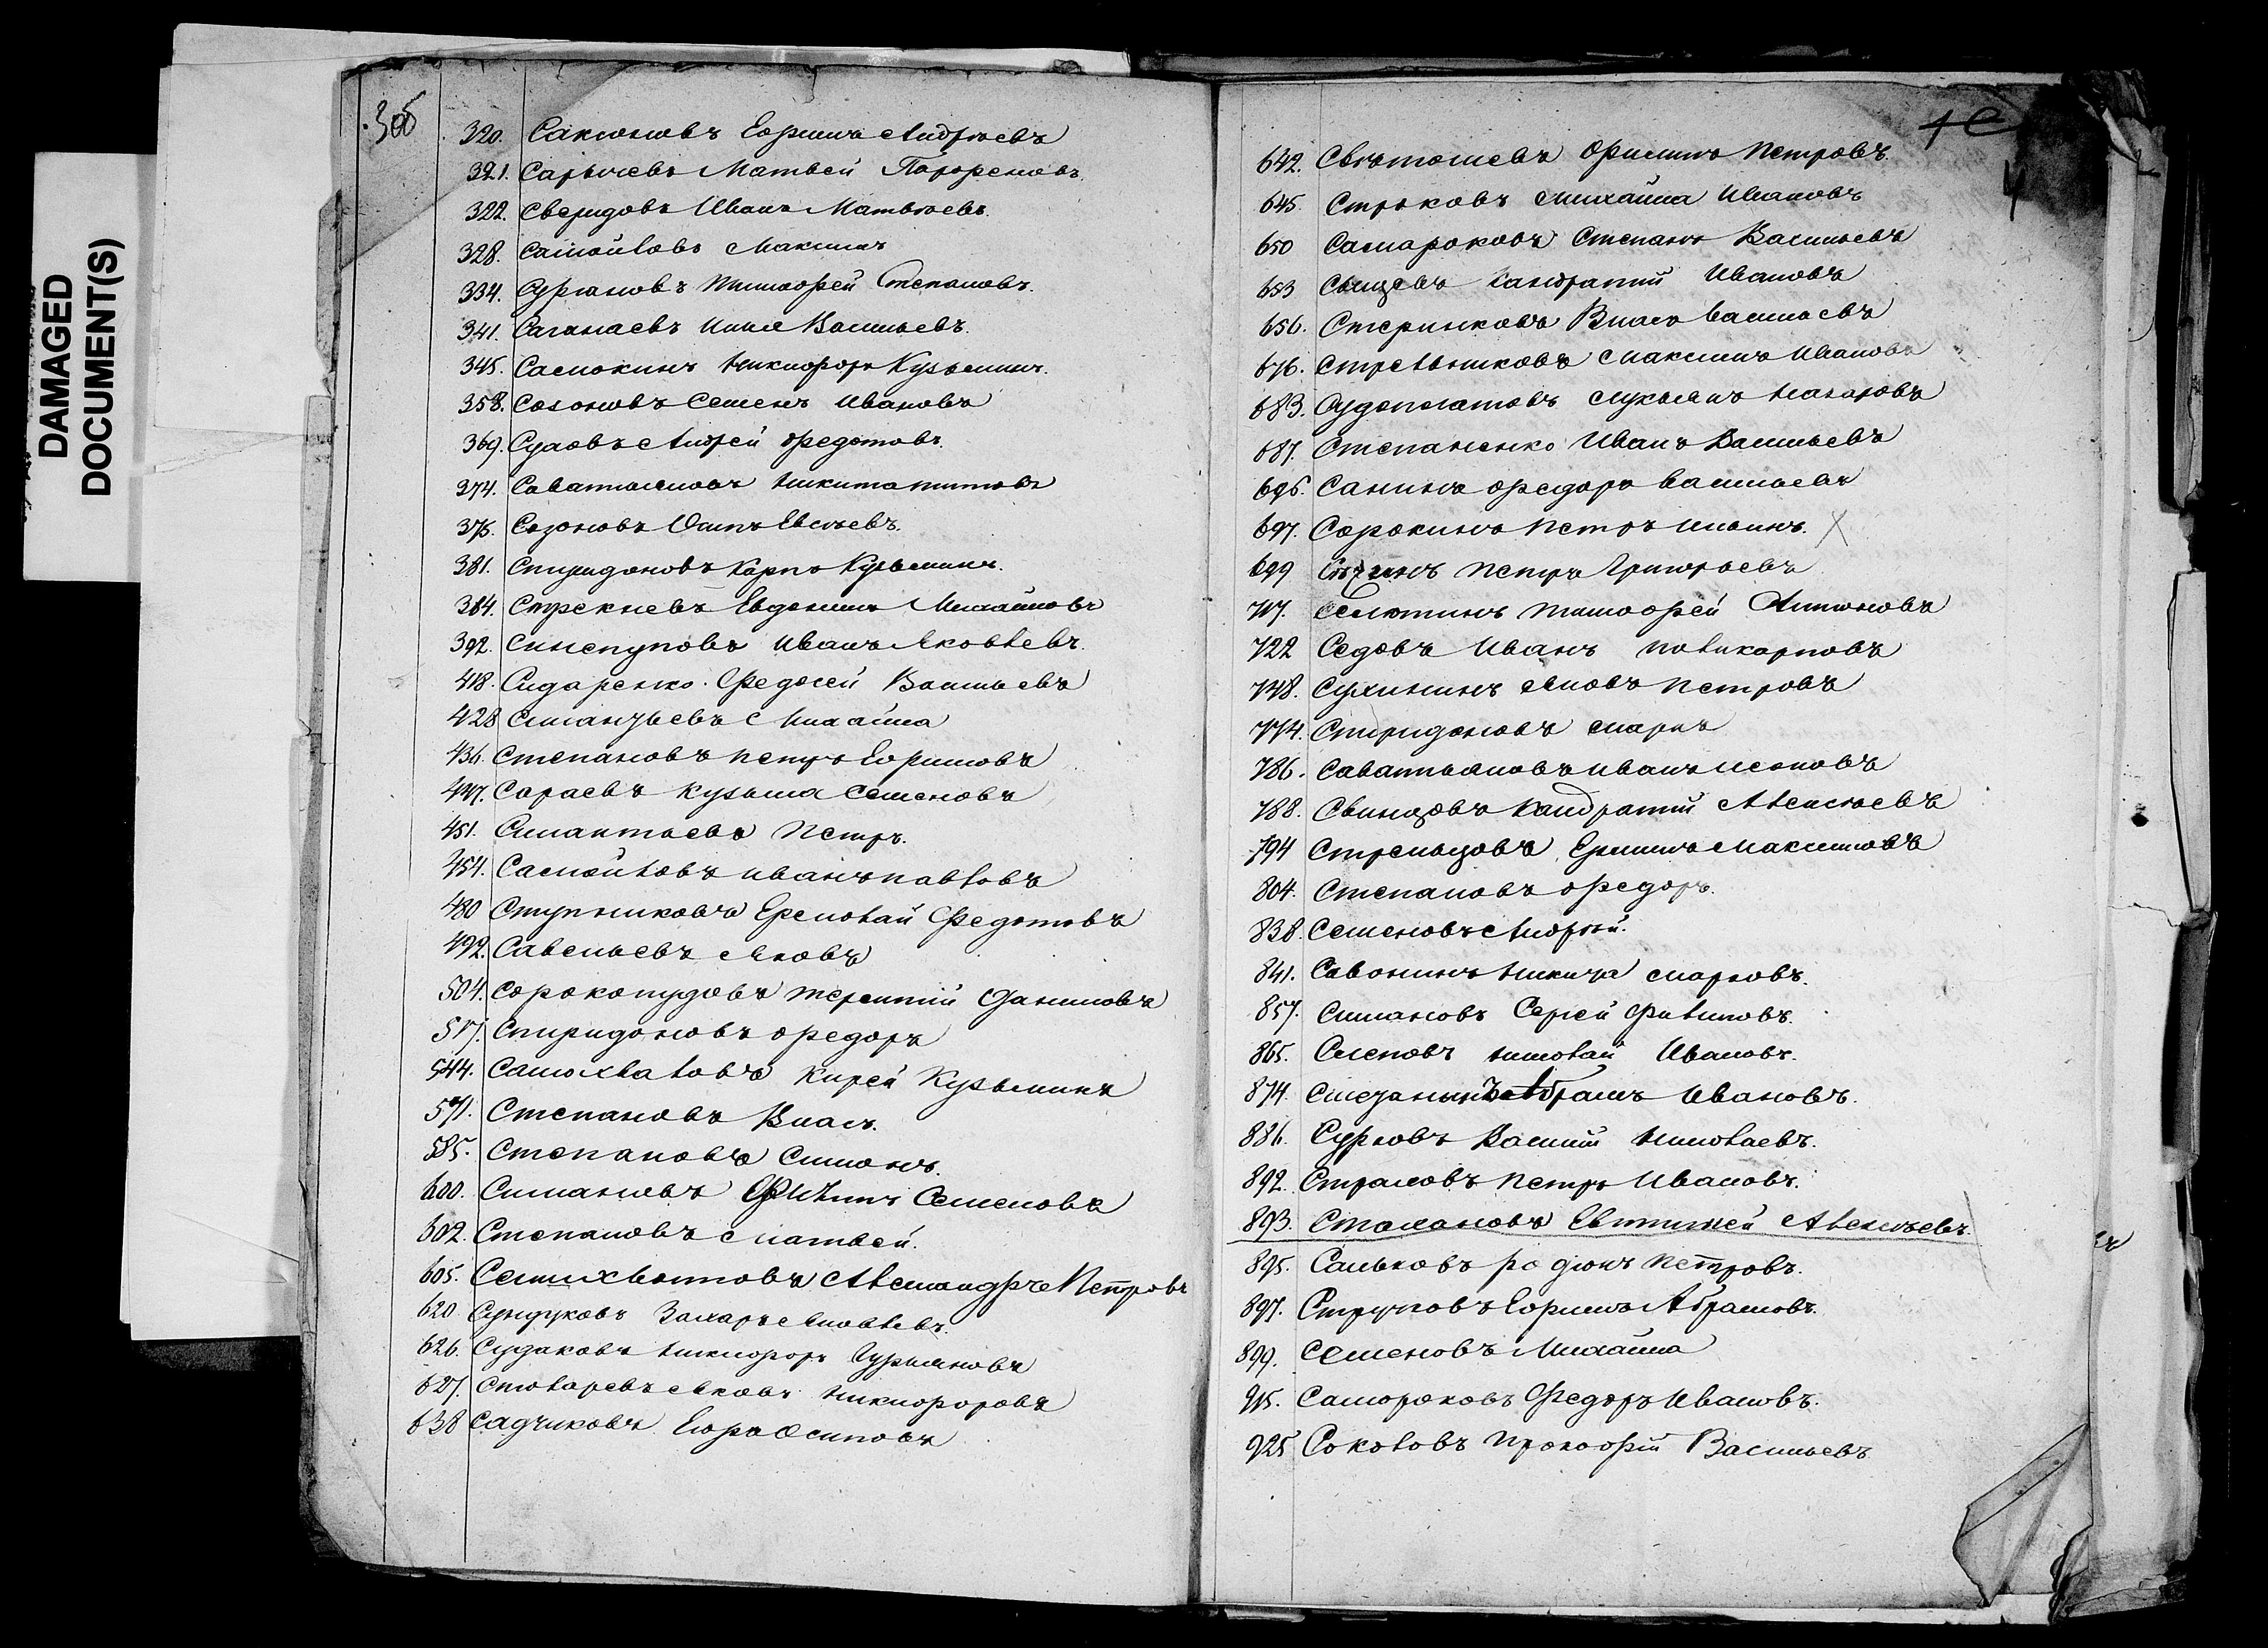 DAMAGED
DOCUMENT(S)
305
320. Саксоновъ Ефимъ Андреевъ
321. Сарычевъ Матвей Парфеновъ.
322. Свередовъ Иванъ Матвѣевъ.
328. Самойловъ Максимъ
334. Сургановъ Тимофей Степановъ.
341. Васильевъ.
345. Самокинъ Никифоръ Кузьминъ.
358. Созоновъ Семенъ Ивановъ
369. Андрей Федотовъ.
374. Никита Титовъ
375. Созоновъ Осипъ Евсѣевъ.
381. Спиридоновъ Карпъ Кузьминъ.
384. Стрекневъ Евдокимъ Михайловъ
392. Синепуповъ Иванъ Яковлевъ.
418. Сидаренко Федосей Васильевъ
428 Михайла
436. Степановъ Петръ Ефимовъ
447. Сараевъ Кузьма Семеновъ
451. Петръ.
454. Самойловъ Иванъ Павловъ
480 Ступниковъ Ермолай Федотовъ
492. Савельевъ Яковъ
504. Сорокопудовъ Терентий Даниловъ
517. Спиридоновъ Федоръ
544. Самохваловъ Кирей Кузьминъ
571. Степановъ Власъ.
585. Степановъ Симонъ.
600. Симановъ Филипъ Семеновъ
602. Степановъ Матвей.
605. Александръ Петровъ
620 Сундуковъ Захаръ Яковлевъ.
626. Судаковъ Никифоръ Гурьяновъ
627. Столаревъ Яковъ Никифоровъ
638 Садчиковъ Егоръ Осиповъ
4
642. Святошевъ Филипъ Петровъ.
645. Стрѣковъ Михайла Ивановъ
650 Самароковъ Степанъ Васильевъ
653 Кандратий Ивановъ
656. Стеринковъ Власъ Васильевъ
676. Стрельниковъ Максимъ Ивановъ
683. Судоплатовъ Лукьянъ Назаровъ
687. Степаненко Иванъ Васильевъ
696. Санинъ Федоръ Васильевъ
697. Сорокинъ Петръ Ильинъ. X
699 Петръ Григорьевъ
717. Селютинъ Тимофей Антоновъ
722 Седовъ Иванъ Поликарповъ
748. Сухининъ Яковъ Петровъ
774. Спиридоновъ Маркъ
786. Саватьяновъ Иванъ Исаковъ
788. Свинцовъ Кандратий Алексѣевъ
794 Стрельцовъ Ефимъ Максимовъ
804. Степановъ Федоръ.
838. Семеновъ Андрѣй.
841. Савонинъ Никита Марковъ.
857. Симановъ Сергей Филиповъ.
865. Слеповъ Николай Ивановъ.
874. Абрамъ Ивановъ.
886. Сурковъ Василий Николаевъ.
892. Страховъ Петръ Ивановъ.
893. Стахановъ Евтифей Алексѣевъ.
895. Сальковъ Родіонъ Петровъ.
897. Струповъ Ефимъ Абрамовъ.
899. Семеновъ Михайла
915. Самороковъ Федоръ Ивановъ.
925 Соколовъ Прокофій Васильевъ